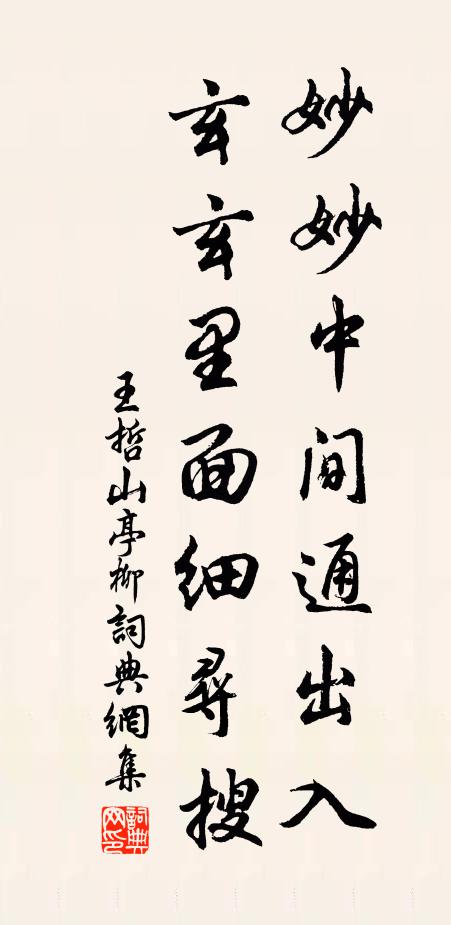 妙妙中间通出入
玄玄里面细尋搜
王哲山亭柳詞典網集
詞典网印